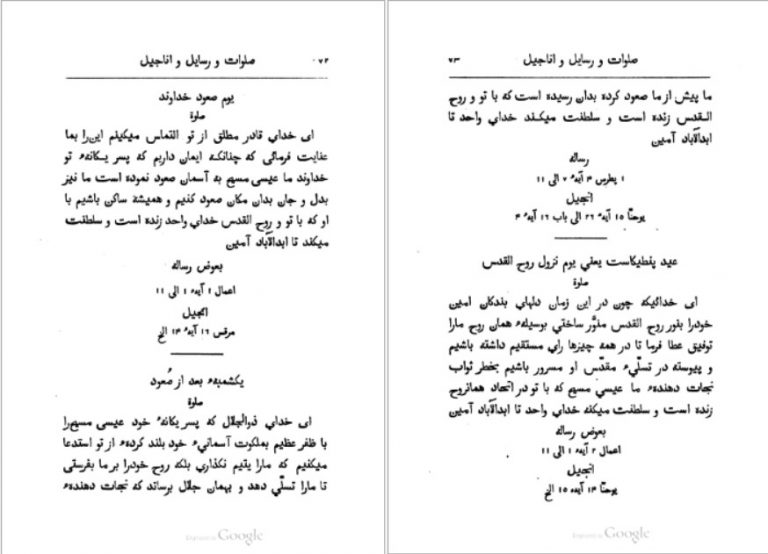 ۷۲ صلوات و رسایل و اناجیل
یوم صعود خداوند
صلوة
ای خداي قادر مطلق از تو التماس میکنیم این را بما
عنایت فرمائی که چنانکه ایمان داریم که پسر یگانهء تو
خداوند ما عیسی مسیح به آسمان صعود نموده است ما نیز
بدل و جان بدان مکان صعود کنیم و همیشه ساکن باشیم با
او که با تو و روح القدس خداي واحد زنده است و سلطنت
میکند تا ابدالآباد آمین
بعوض رساله
اعمال ۱ آیهء ۱ الی ۱۱
انجیل
مرقس ۱۶ آیهء ۱۴ الخ
یکشنبهء بعد از صُعود
صلوة
ای خداي ذوالجلال که پسر یگانهء خود عیسی مسیح را
با ظفر عظیم بملکوت آسمانيء خود بلند کردهء از تو استدعا
میکنیم که مارا یتیم نگذاري بلکه روح خودرا بر ما بفرستی
تا مارا تسلّي دهد و بهمان جلال برساند که نجات دهندهء
Digitized by Google
۷۳ صلوات و رسایل و اناجیل
ما پیش از ما صعود کرده بدان رسیده است که با تو و روح
القدس زنده است و سلطنت میکند خداي واحد تا
ابدالآباد آمین
رساله
۱ پطرس ۴ آیهء ۷ الی ۱۱
انجیل
یوحنّا ۱۵ آیهء ۲۶ الی باب ۱۶ آیهء ۴
عید پنطیکاست یعنی یوم نزول روح القدس
صلوة
ای خدائیکه چون در این زمان دلهاي بندکان امین
خودرا بنور روح القدس منوَّر ساختي بوسیلهء همان روح مارا
توفیق عطا فرما تا در همه چیزها راي مستقیم داشته باشیم
و پیوسته در تسلّيء مقدّس او مسرور باشیم بخطر ثواب
نجات دهندهء ما عیسي مسیح که با تو در اتحاد همانروح
زنده است و سلطنت میکند خداي واحد تا ابدالآباد آمین
بعوض رساله
اعمال ۲ آیهء ۱ الی ۱۱
انجیل
یوحنّا ۱۴ آیهء ۱۵ الخ
Digitized by Google